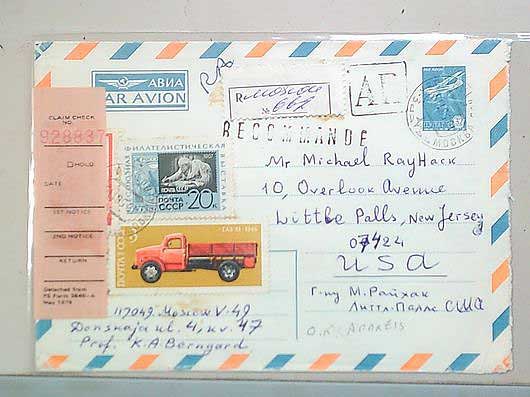 АВИА
PAR AVION
R Moscou
№ 667
АП
RECOMMANDE
CLAIM CHECK
NO.
928837
HOLD
DATE
1ST NOTICE
2ND NOTICE
RETURN
Detached from
PS Form 3849-A
May 1976
1967
ПОЧТА
СССР 20к
ГАЗ-51 1946
Mr Michael RayHack
10, Overlook Avenue
Little Palls, New Jersey
07424
USA
Г-ну М. Райхак
Литтл-Паллс США
117049. Moscow V-49
Donskaja ul. 4, kv. 47
Prof. K.A. Berngard